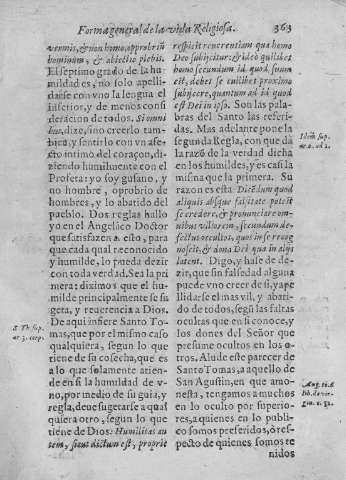 Forma general de la vida Religiosa. 363
vermis, & non homo, opprobriũ
hominum, & abiectio plebis.
El septimo grado de la hu
mildad es, no solo apelli-
darse con vno la lengua el
inferior, y de menos consi
deracion de todos. Si omni
bus, dize, sino creerlo tam-
bien, y sentirlo con vn afe-
cto intimo del coraçon, di-
ziendo humilmente con el
Profeta: yo soy gusano, y
no hombre, oprobrio de
hombres, y lo abatido del
pueblo. Dos reglas hallo
yo en el Angelico Doctor
que satisfazen a esto, para
que cada qual reconocido
y humilde, lo pueda dezir
con toda verdad. Sea la pri
mera: diximos que el hu-
milde principalmente se su
geta, y reuerencia a Dios.
De aqui infiere Santo To-
mas, que por el mismo caso
qualquiera, segun lo que
tiene de su cosecha, que es
a lo que solamente atien-
de en si la humildad de v-
no, por medio de su guia, y
regla, deue sugetarse a qual
quiera otro, segun lo que
tiene de Dios. Humilitas au
tem, sicut dictum est, proprie
S. Th. sup.
ar. 3. corp.
respicit reuerentiam qua homo
Deo subijcitur: & ideo quilibet
homo secundum id quod suum
est, debet se cuilibet proximo
subijcere, quantum ad id quod
est Dei in ipso. Son las pala-
bras del Santo las referi-
das. Mas adelante pone la
segunda Regla, con que dà
la razõ de la verdad dicha
en los humildes, y es casi la
misma que la primera. Su
razon es esta. Dicendum quod
aliquis absque falsitate potest
se credere, & pronunciare om-
nibus viliorem, secundum de-
fectus occultos, quos in se recog
noscit, & dona Dei quæ in alijs
latent. Digo, y hase de de-
zir, que sin falsedad alguna
puede vno creer de si, y ape
llidarse el mas vil, y abati-
do de todos, segũ las faltas
ocultas que en si conoce, y
los dones del Señor que
presume ocultos en los o-
tros. Alude este parecer de
Santo Tomas, a aquello de
San Agustin, en que amo-
nesta, tengamos a muchos
en lo oculto por superio-
res, a quienes en lo publi-
co somos preferidos, ò res-
pecto de quienes somos te
nidos
Idem sup.
ar. 6. ad 1.
Aug. to. 6.
lib. de vir-
gin. c. 52.